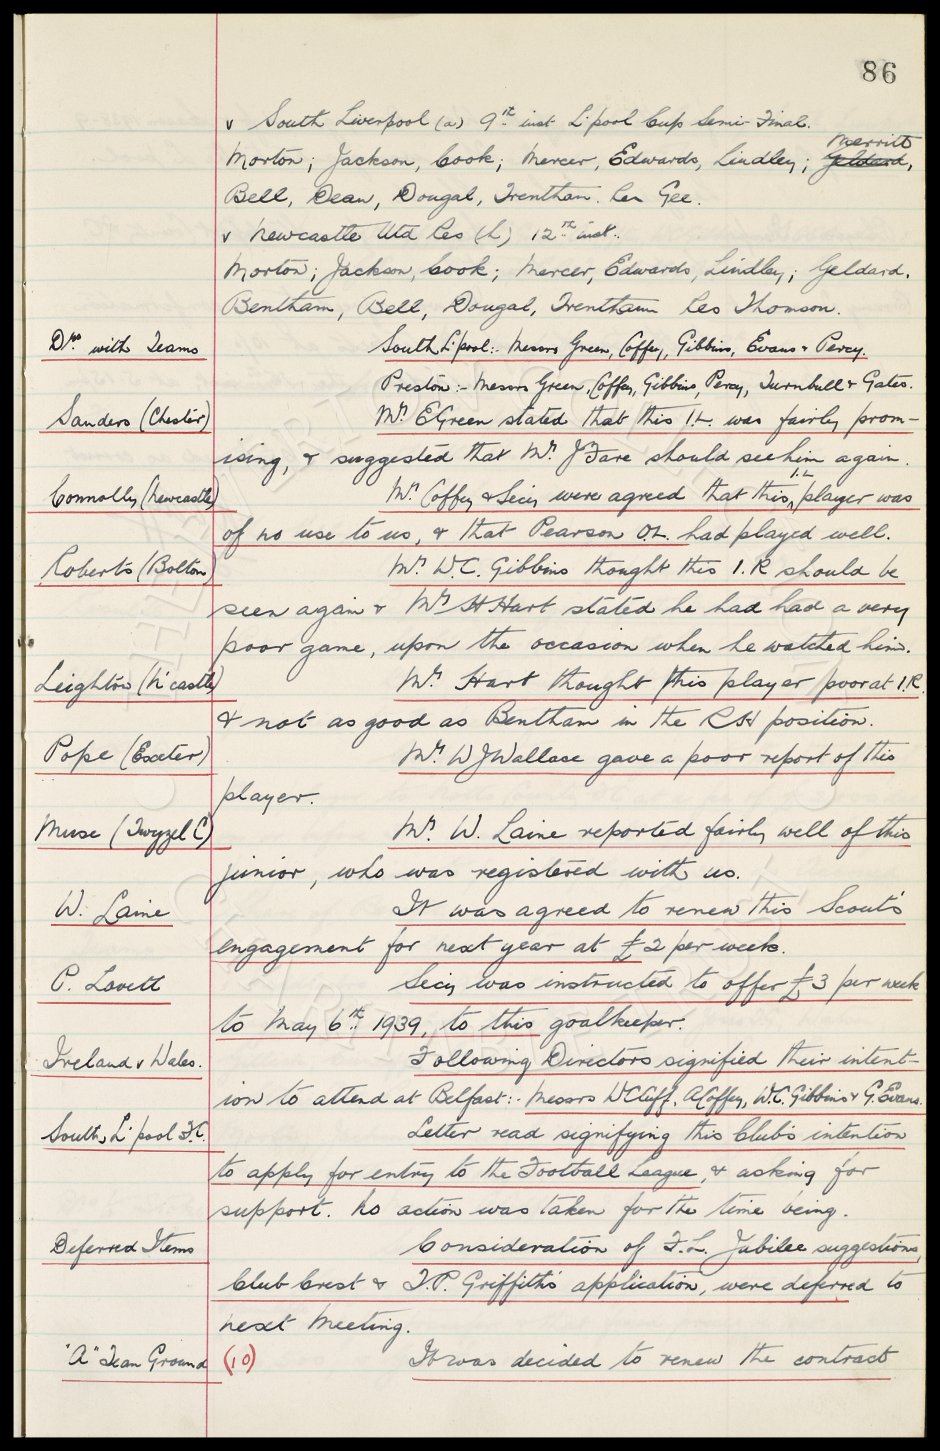 86
v South Liverpool (a) 9th inst L'pool Cup Semi-Final.
Merritt
Morton; Jackson, Cook; Mercer, Edwards, Lindley; Geldard,
Bell, Dean, Dougal, Trentham. Res Gee.
v Newcastle Utd Res (h) 12th inst.
Morton; Jackson, Cook; Mercer, Edwards, Lindley; Geldard.
Bentham, Bell, Dougal, Trentham Res Thomson.
Drs with Teams South L'pool:- Messrs Green, Coffey, Gibbins, Evans & Percy.
Preston:- Messrs Green, Coffey, Gibbins, Percy, Turnbull & Gates.
Sanders (Chester) Mr. E Green stated that this I.L. was fairly prom-
ising, & suggested that Mr. J Fare should see him again.
I.L
Connolly (Newcastle) Mr. Coffey & Secy were agreed that this player was
of no use to us, & that Pearson O.L. had played well.
Roberts (Bolton) Mr. W.C. Gibbins thought this I.R should be
seen again & Mr. H Hart stated he had had a very
poor game, upon the occasion when he watched him.
Leighton (N'castle) Mr. Hart thought this player poor at I.R.
& not as good as Bentham in the R H position.
Pope (Exeter) Mr. W J Wallace gave a poor report of this
player.
Muse (Twyzel C) Mr. W. Laine reported fairly well of this
junior, who was registered with us.
W. Laine It was agreed to renew this Scout's
engagement for next year at £2 per week.
P. Lovett Secy was instructed to offer £3 per week
to May 6th 1939, to this goalkeeper.
Ireland v Wales. Following Directors signified their intent-
ion to attend at Belfast:- Messrs W C Cuff, A Coffey, W.C. Gibbins & G. Evans.
South L'pool F.C. Letter read signifying this Club's intention
to apply for entry to the Football League, & asking for
support. No action was taken for the time being.
Deferred Items Consideration of F.L. Jubilee suggestions,
Club Crest & T.P. Griffith's application, were deferred to
next Meeting.
"A" Team Ground (10) It was decided to renew the contract